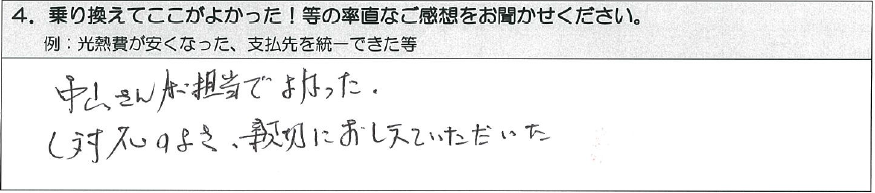 4. 乗り換えてここがよかった！等の率直なご感想をお聞かせください。
例：光熱費が安くなった、支払先を統一できた等
中山さんが担当でよかった.
(対応のよさ、親切におしえていただいた